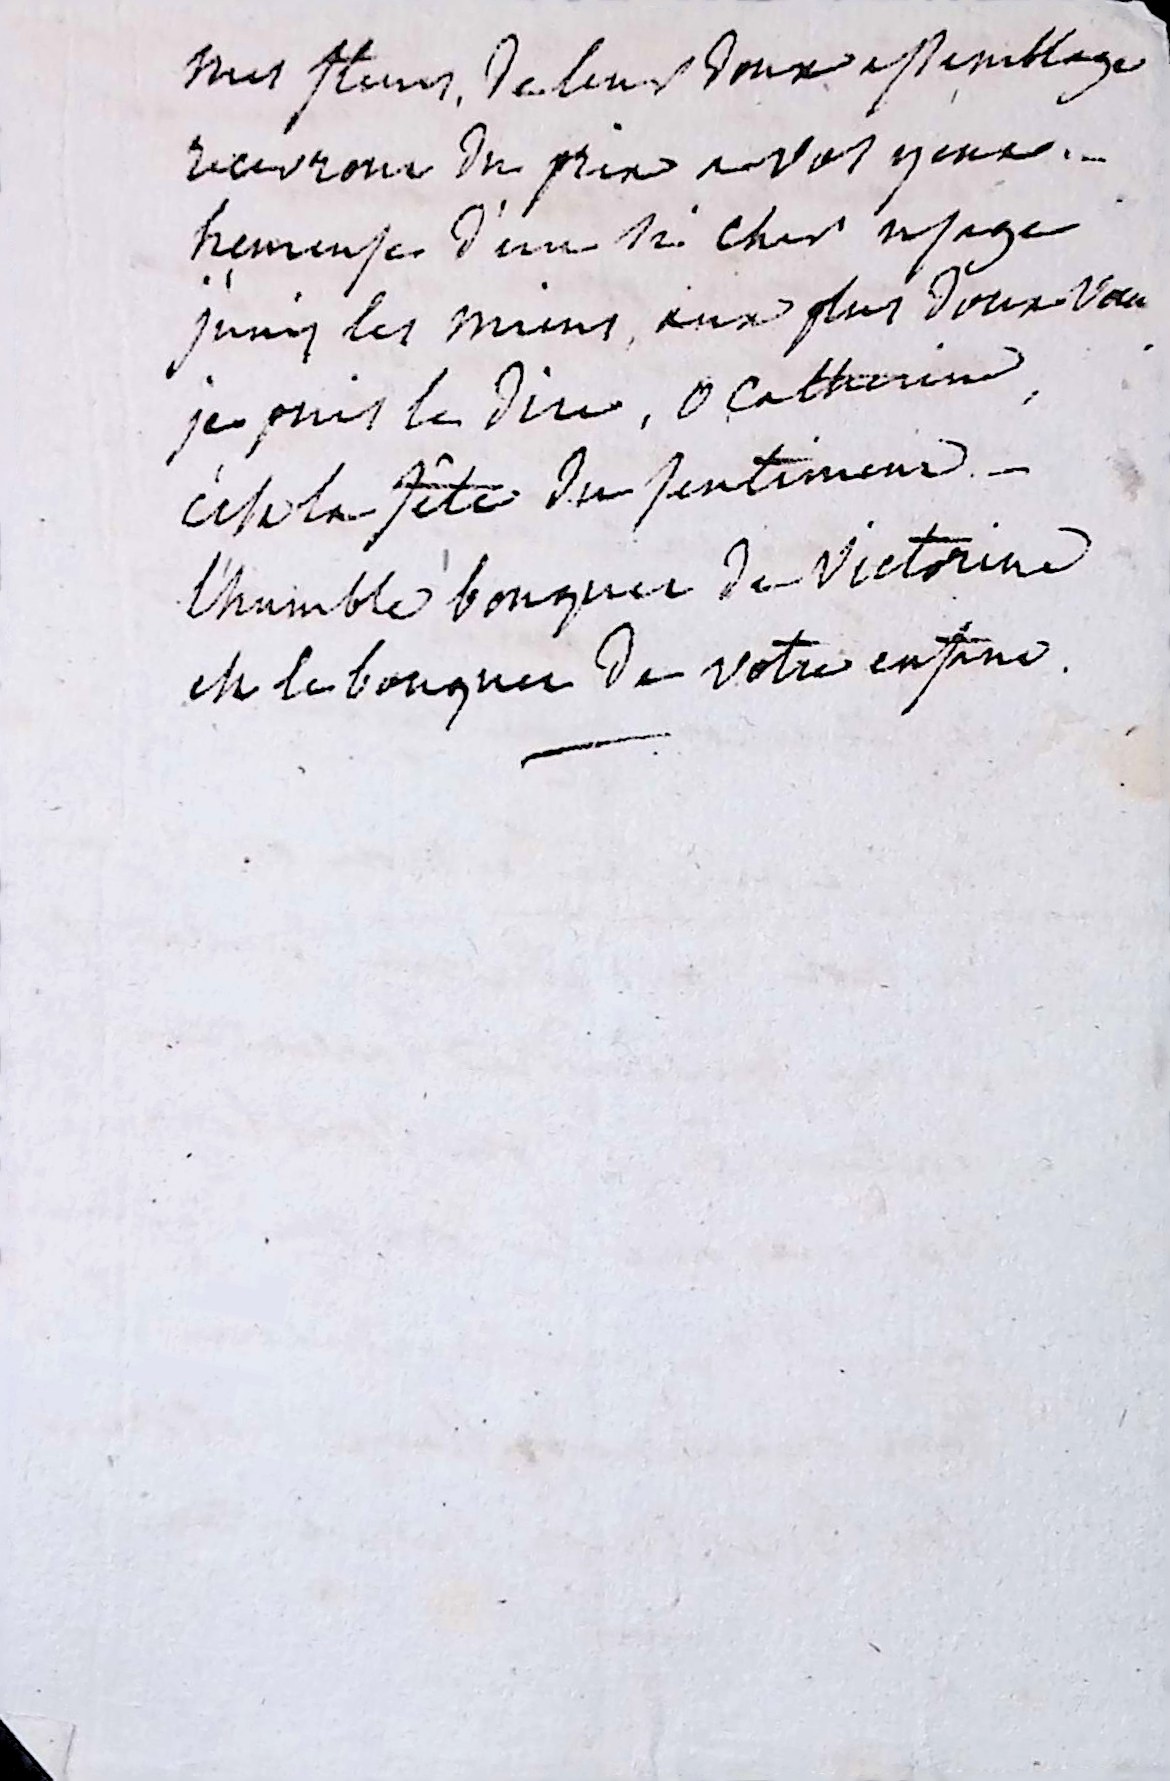 mes fleurs, de leur doux assemblage
recevront du prix a vos yeux. –
heureuse d'un si cher usage
j'unis les miens, aux plus doux vœux
je puis le dire, o Catherine,
c'est la fête du sentiment. –
l'humble bouquet de Victorine
est le bouquet de votre enfant.